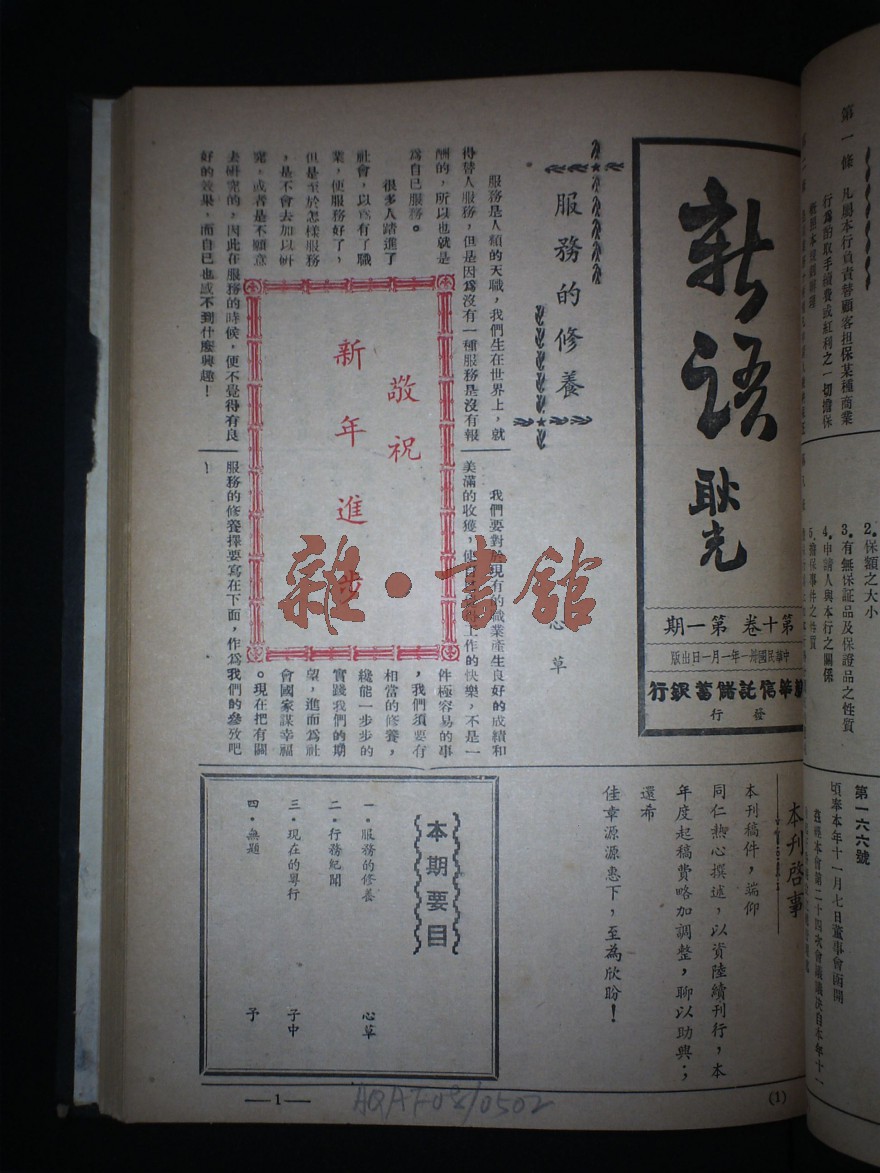 新語
耿光
第十卷 第一期
中華民國卅一年一月一日出版
華信託儲蓄銀行
發行
服務的修養
心草
服務是人類的天職，我們生在世界上，就
得替人服務，但是因爲沒有一種服務是沒有報
酬的，所以也就是
爲自己服務。
很多人踏進了
社會，以爲有了職
業，便服務好了，
但是至於怎樣服務
，是不會去加以研
究，或者是不願意
去研究的，因此在服務的時候，便不覺得有良
好的效果，而自己也感不到什麼興趣！
我們要對於現有的職業產生良好的成績和
美滿的收獲，使
工作的快樂，不是一
件極容易的事
，我們須要有
相當的修養，
纔能一步步的
實踐我們的期
望，進而爲社
會國家謀幸福
。現在把有關
服務的修養擇要寫在下面，作爲我們的參攷吧
！
敬祝
新年進步
雜·書館
本刊啓事
本刊稿件，端仰
同仁熱心撰述，以資陸續刊行，本
年度起稿費略加調整，聊以助興；
還希
佳章源源惠下，至為欣盼！
本期要目
一·服務的修養 心草
二·行務紀聞
三·現在的粵行 子中
四·無題 予
(1)
—1—
HQAF08/0502
第一條 凡屬本行負責替顧客担保某種商業
行爲酌取手續費或紅利之一切擔保
2.保額之大小
3.有無保証品及保證品之性質
4.申請人與本行之關係
5.擔保事件之性質
第一六六號
頃奉本年十一月七日董事會函開
茲經本會第二十四次會議議決自本年十一